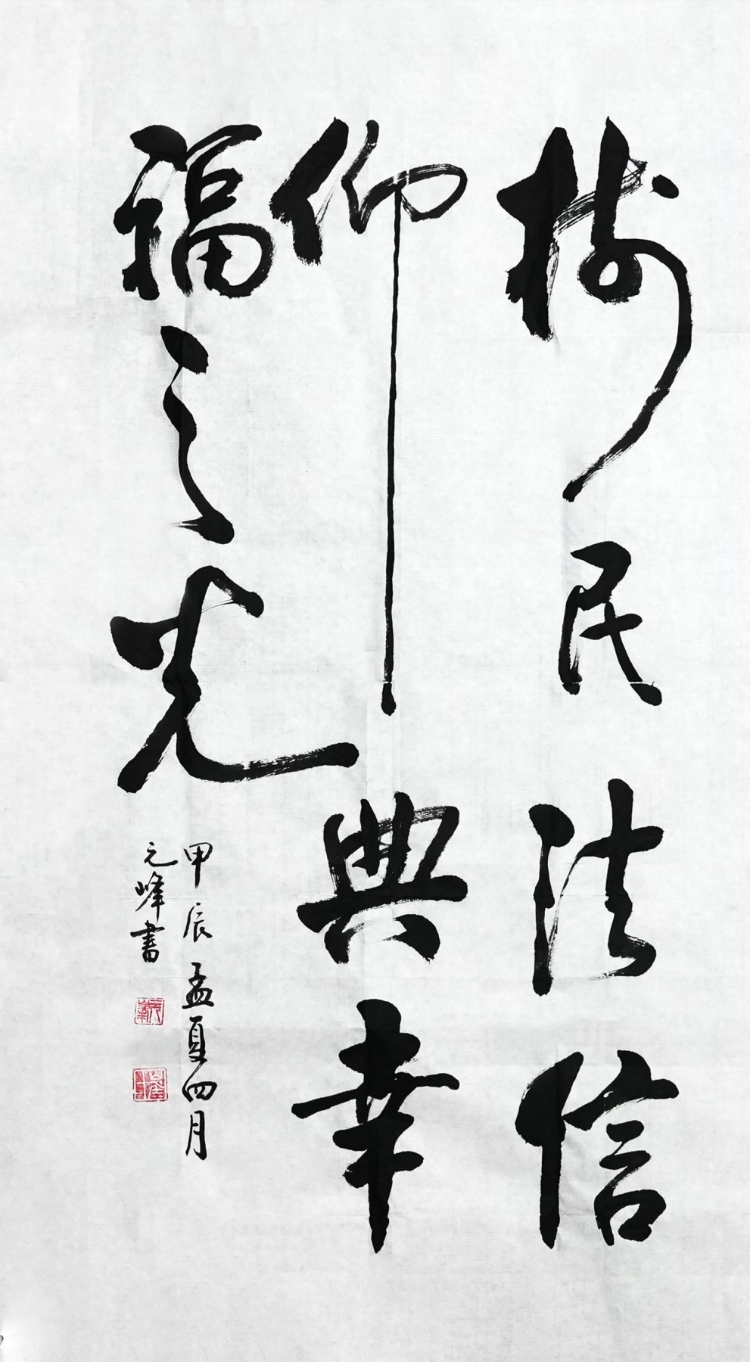 树民法信
仰典幸
福之光
甲辰孟夏四月
元峰书